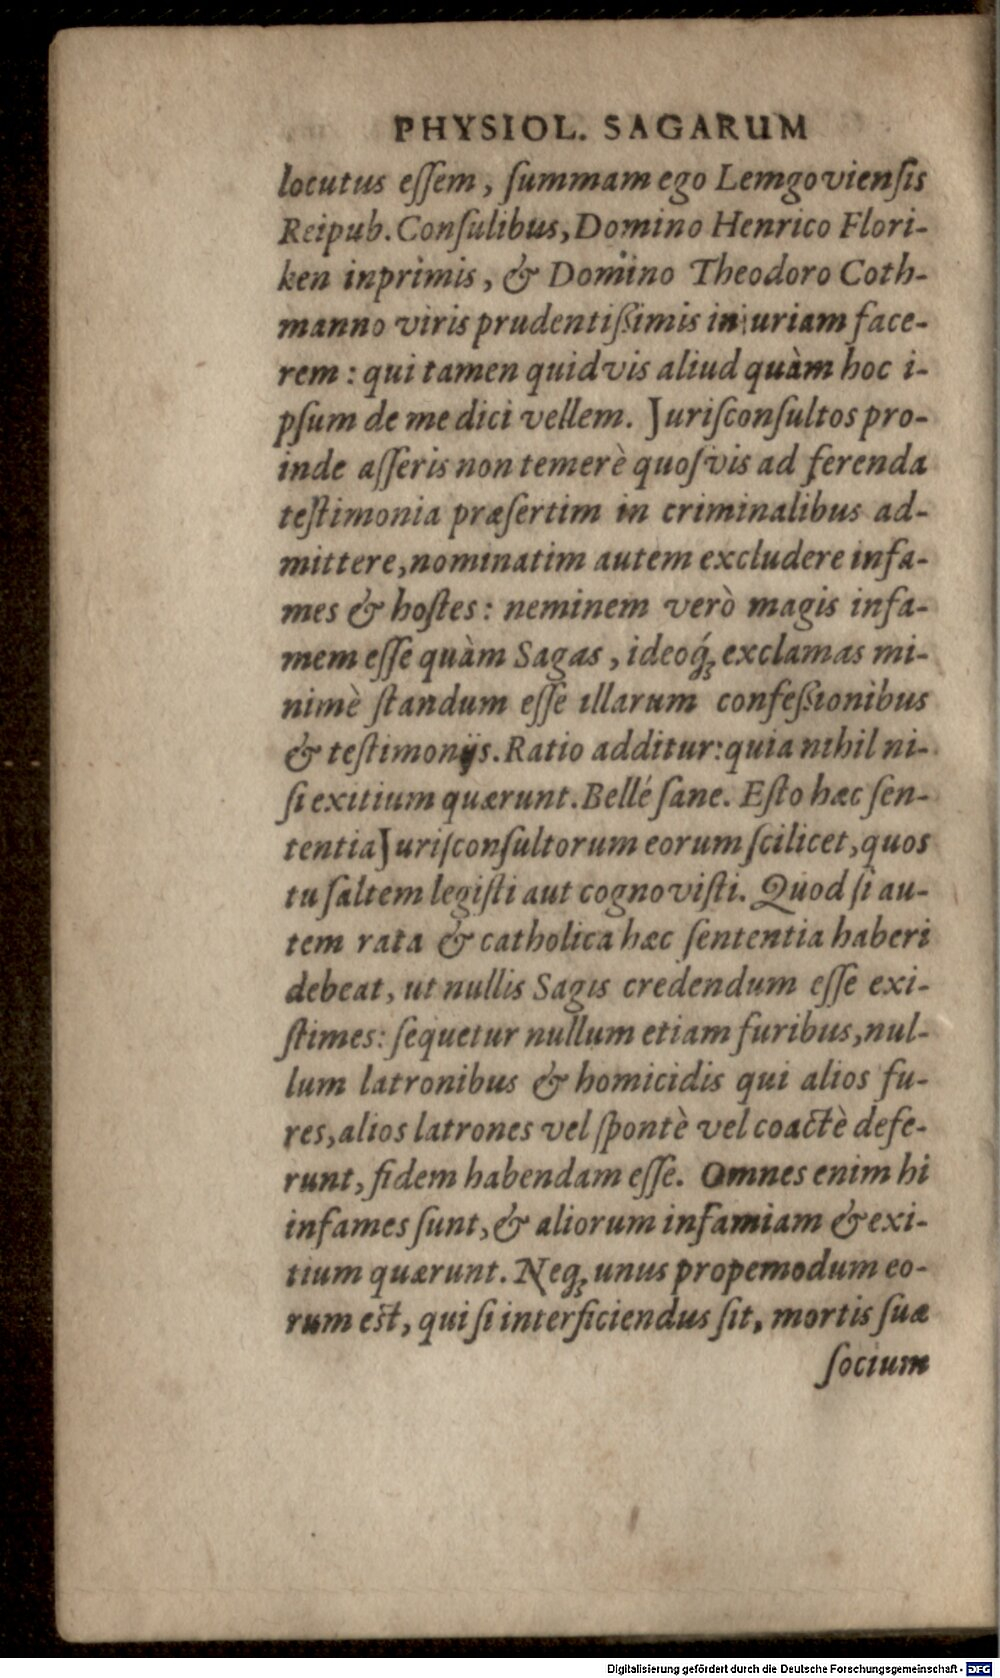 PHYSIOL. SAGARUM
locutus eſſem, ſummam ego Lemgovienſis
Reipub. Conſulibus, Domino Henrico Flori-
ken inprimis, & Domino Theodoro Coth-
manno viris prudentißimis iniuriam face-
rem: qui tamen quidvis aliud quàm hoc i-
pſum de me dici vellem. Juriſconſultos pro-
inde aſſeris non temerè quoſvis ad ferenda
teſtimonia præſertim in criminalibus ad-
mittere, nominatim autem excludere infa-
mes & hoſtes: neminem verò magis infa-
mem eſſe quàm Sagas, ideoq́; exclamas mi-
nimè ſtandum eſſe illarum confeßionibus
& teſtimonijs. Ratio additur: quia nihil ni-
ſi exitium quærunt. Bellé ſane. Eſto hæc ſen-
tentia Juriſconſultorum eorum ſcilicet, quos
tu ſaltem legiſti aut cognoviſti. Quod ſi au-
tem rata & catholica hæc ſententia haberi
debeat, ut nullis Sagis credendum eſſe exi-
ſtimes: ſequetur nullum etiam furibus, nul-
lum latronibus & homicidis qui alios fu-
res, alios latrones vel ſpontè vel coactè defe-
runt, fidem habendam eſſe. Omnes enim hi
infames ſunt, & aliorum infamiam & exi-
tium quærunt. Neq; unus propemodum eo-
rum est, qui ſi interficiendus ſit, mortis ſuæ
ſocium
Digitalisierung gefördert durch die Deutsche Forschungsgemeinschaft - DFG